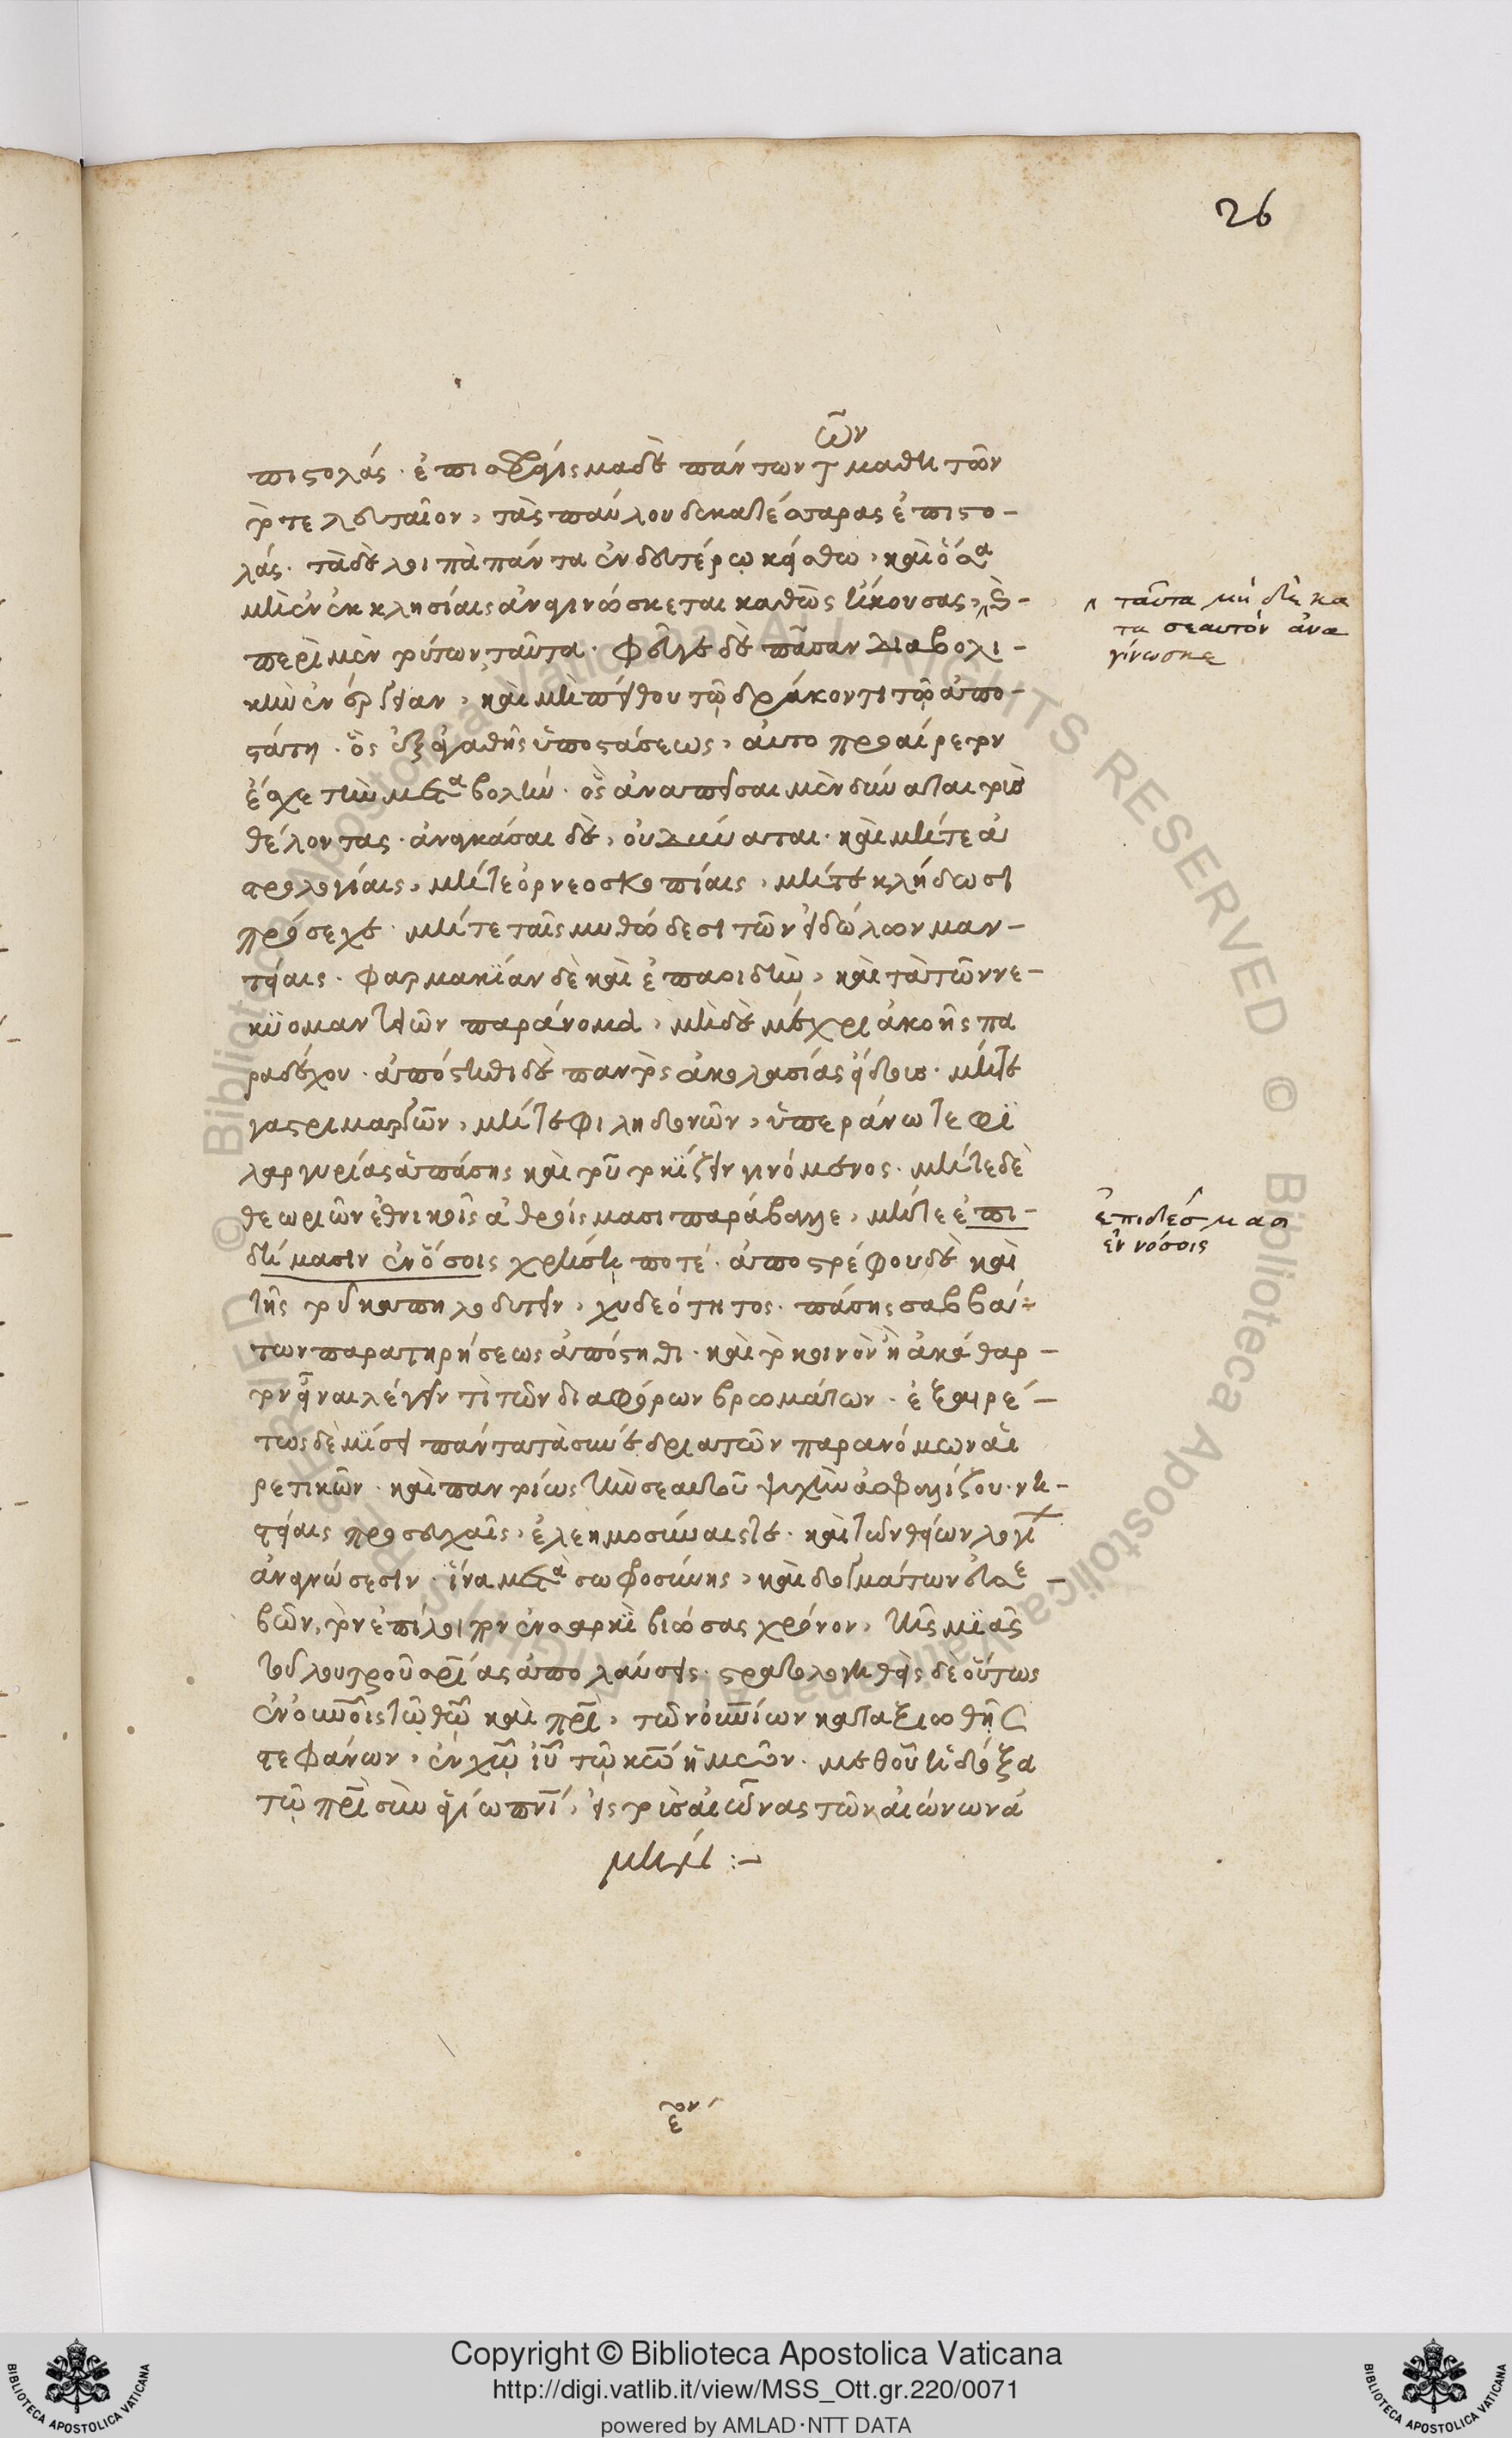 26
πιστολάς. ἐπισφράγισμα δὲ πάντων τῶν μαθητῶν
τὸ τελευταῖον, τὰς παύλου δεκατέσσαρας ἐπιστο-
λάς. τὰ δὲ λοιπὰ πάντα ἐν δευτέρω κείσθω, καὶ ὅσα
μὴ ἐν ἐκκλησίαις ἀναγινώσκεται καθὼς ἤκουσας,
^ ταῦτα μὴ δὲ κα
τα σεαυτὸν ἀνα
γίνωσκε
περὶ μὲν τούτων ταῦτα. φεῦγε δὲ πᾶσαν διαβολι-
κὴν ἐνέργειαν, καὶ μὴ πείθου τῷ δράκοντι τῷ ἀπο-
στάτη. ὃς ἐξ ἀγαθῆς ὑποστάσεως, αὐτοπροαίρετον
ἔσχε τὴν μεταβολήν. ὃς ἀναπεῖσαι μὲν δύναται τοὺς
θέλοντας. ἀναγκάσαι δὲ, οὐ δύναται. καὶ μήτε ἀ
στρολογίαις, μήτε ὀρνεοσκοπίαις, μήτε κλήδωσι
πρόσεχε. μήτε ταῖς μυθώδεσι τῶν εἰδώλων μαν-
τείαις. φαρμακΐαν δὲ καὶ ἐπαοιδὴν, καὶ τὰ τῶν νε-
κϋομαντειῶν παράνομα, μὴ δὲ μέχρι ἀκοῆς πα
ραδέχου. ἀπόστηθι δὲ παντὸς ἀκολασίας εἴδους. μήτε
γαστριμαργῶν, μήτε φιληδονῶν, ὑπεράνω τε φϊ
λαργυρίας ἁπάσης καὶ τοῦ τοκΐζειν γινόμενος. μήτε δὲ
θεωριῶν ἐθνικοῖς ἀθροίσμασι παράβαλλε, μήτε ἐπι-
δέμασιν ἐν νόσοις χρήση ποτέ. ἀποστρέφου δὲ καὶ
ἐπιδέσμασι
ἐν νόσοις
τῆς τοῦ καπηλοδυτεῖν, χυδεότητος. πάσης σαββά-
των παρατηρήσεως ἀπόστηθι. καὶ τὸ κοινὸν ἢ ἀκάθαρ-
τον εἶναι λέγειν τὶ τῶν διαφόρων βρωμάτων. ἐξαιρέ-
τως δὲ μΐσει πάντα τὰ συνέδρια τῶν παρανόμων αἱ
ρετικῶν. καὶ παντοίως τὴν σεαυτοῦ ψυχὴν ἀσφαλίζου. νη-
στείαις προσευχαῖς, ἐλεημοσύναις τε. καὶ τῶν θείων λογΐ
ἀναγνώσεσιν. ἵνα μετὰ σωφοσύνης, καὶ δογμάτων εὐσε-
βῶν, τὸν ἐπίλοιπον ἐν σαρκὶ βιώσας χρόνον, τῆς μϊᾶς
τοῦ λουτροῦ σρΐας ἀπολαύσης. στρατολογηθεὶς δὲ οὕτως
ἐν οὐνοῖς τῷ θῷ καὶ πρὶ, τῶν οὐνίων καταξιωθῆς
στεφάνων, ἐν χῷ ιῦ τῷ κῷ ἡμῶν. μεθ οὗ ἡ δόξα
τῷ πρὶ σὺν ἁγίω πνΐ, εἰς τοὺς αἰῶνας τῶν αἰώνων ἀ
μήν :-
Copyright © Biblioteca Apostolica Vaticana
http://digi.vatlib.it/view/MSS_Ott.gr.220/0071
powered by AMLAD·NTT DATA